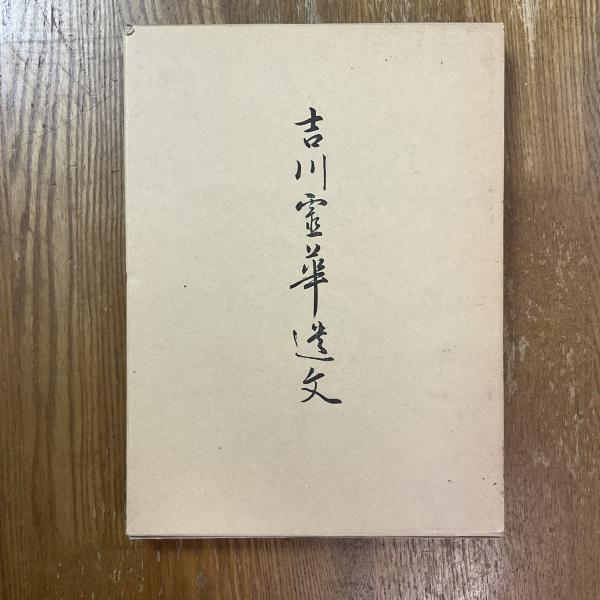 吉川霊華遺文